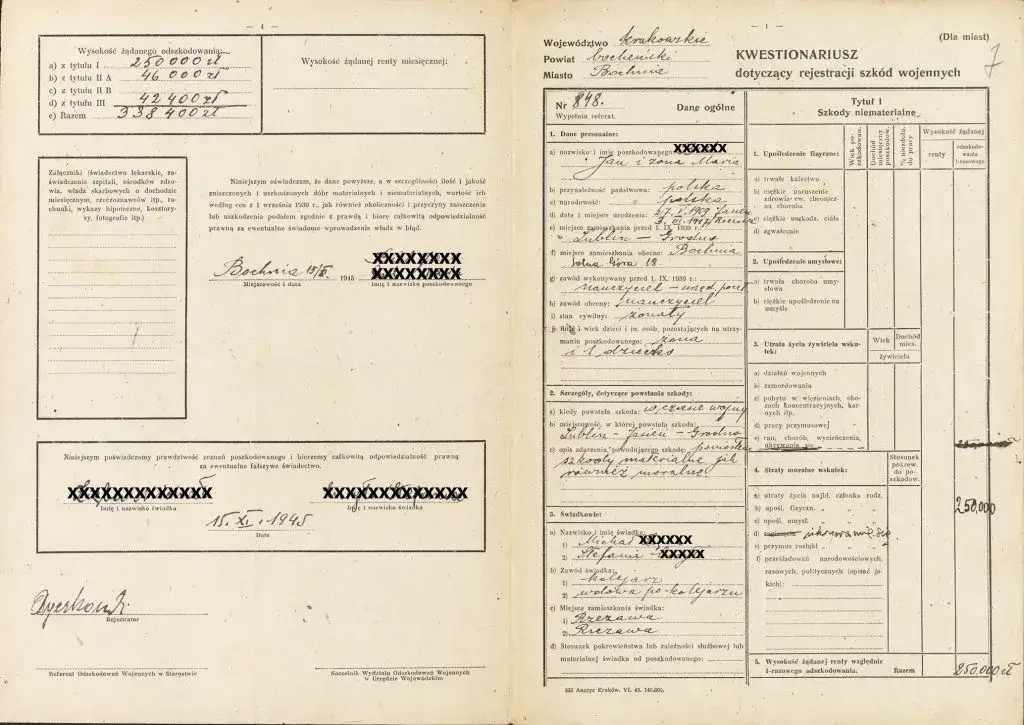 — 4 —
Wysokość żądanego odszkodowania:
a) z tytułu I 250000 zł
b) z tytułu II A 46 000 zł
c) z tytułu II B
d) z tytułu III 42 400 zł
e) Razem 338 400 zł
Wysokość żądanej renty miesięcznej:
Załączniki (świadectwo lekarskie, za-
świadczenie szpitali, ośrodków zdro-
wia, władz skarbowych o dochodzie
miesięcznym, rzeczoznawców itp., ra-
chunki, wykazy hipoteczne, kosztory-
sy, fotografie itp.)
Niniejszym oświadczam, że dane powyższe, a w szczególności ilość i jakość
zniszczonych i uszkodzonych dóbr materialnych i niematerialnych, wartość ich
według cen z 1 września 1939 r., jak również okoliczności i przyczyny zniszczenia
lub uszkodzenia podałem zgodnie z prawdą i biorę całkowitą odpowiedzialność
prawną za ewentualne świadome wprowadzenie władz w błąd.
Bochnia 15/XI 1945
XXXXXXXX
XXXXXXXX
Miejscowość i data
Imię i nazwisko poszkodowanego
Niniejszym poświadczamy prawdziwość zeznań poszkodowanego i bierzemy całkowitą odpowiedzialność prawną
za ewentualne fałszywe świadectwo.
XXXXXXXXXXXXX XXXXXXXXXXXXX
Imię i nazwisko świadka Imię i nazwisko świadka
15. XI. 1945
Data
Rejestrator
Referent Odszkodowań Wojennych w Starostwie
Naczelnik Wydziału Odszkodowań Wojennych
w Urzędzie Wojewódzkim
— 1 —
(Dla miast)
7
Województwo krakowskie
Powiat bocheński
Miasto Bochnia
KWESTIONARIUSZ
dotyczący rejestracji szkód wojennych
Nr 848.
Wypełnia referat.
Dane ogólne
1. Dane personalne:
a) nazwisko i imię poszkodowanego XXXXXX
Jan i żona Maria
b) przynależność państwowa: polska
c) narodowość: polska
d) data i miejsce urodzenia:
e) miejsce zamieszkania przed 1. IX. 1939 r.:
Lublin – Grodno
f) miejsce zamieszkania obecne: Bochnia
Solna Góra 18.
g) zawód wykonywany przed 1. IX. 1939 r.:
nauczyciel – urzęd. poczt
h) zawód obecny: nauczyciel
i) stan cywilny: żonaty
j) Ilość i wiek dzieci i in. osób, pozostających na utrzy-
maniu poszkodowanego: żona
i 1 dziecko
2. Szczegóły, dotyczące powstania szkody:
a) kiedy powstała szkoda: w czasie wojny
b) miejscowość, w której powstała szkoda:
Lublin – Jasień – Grodno
c) opis zdarzenia, powodującego szkodę: poniosłem
szkody materialne jak
również moralne.
3. Świadkowie:
a) Nazwisko i imię świadka:
1) Michał XXXXXX
2) Stefania XXXXX
b) Zawód świadka:
1) kolejarz
2) wdowa po kolejarzu
c) Miejsce zamieszkania świadka:
1) Rzezawa
2) Rzezawa
d) Stosunek pokrewieństwa lub zależności służbowej lub
materialnej świadka od poszkodowanego:
820 Anczyc Kraków. VI. 45. 140.000.
Tytuł I
Szkody niematerialne
Wiek po-
szkodowan.
Dochód
miesięczny
poszkodow.
% niezdoln.
do pracy
Wysokość żądanej
renty
odszkodo-
wania
1-razowego
1. Upośledzenie fizyczne:
a) trwałe kalectwo
b) ciężkie naruszenie
zdrowia ew. chronicz-
na choroba
c) ciężkie uszkodz. ciała
d) zgwałcenie
2. Upośledzenie umysłowe:
a) trwała choroba umy-
słowa
b) ciężkie upośledzenie na
umyśle
3. Utrata życia żywiciela wsku-
tek:
Wiek
Dochód
mies.
żywiciela
a) działań wojennych
b) zamordowania
c) pobytu w więzieniach, obo-
zach koncentracyjnych, kar-
nych itp.
d) pracy przymusowej
e) ran, chorób, wycieńczenia,
ukrywania się
4. Straty moralne wskutek:
Stosunek
pokrew.
do po-
szkodow.
a) utraty życia najbl. członka rodz.
b) upośl. fizyczn. „ „
c) upośl. umysł. „ „
d) zaginięcia ukrywanie się
e) przymus rozłąki „ „
f) prześladowań narodowościowych,
rasowych, politycznych (opisać ja-
kich):
250.000
5. Wysokość żądanej renty względnie
1-razowego odszkodowania. Razem
250.000 zł